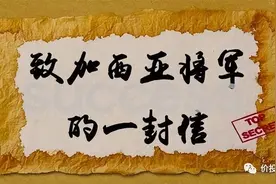 致加西亚将军
的一封信
TOP
SECRE
价投